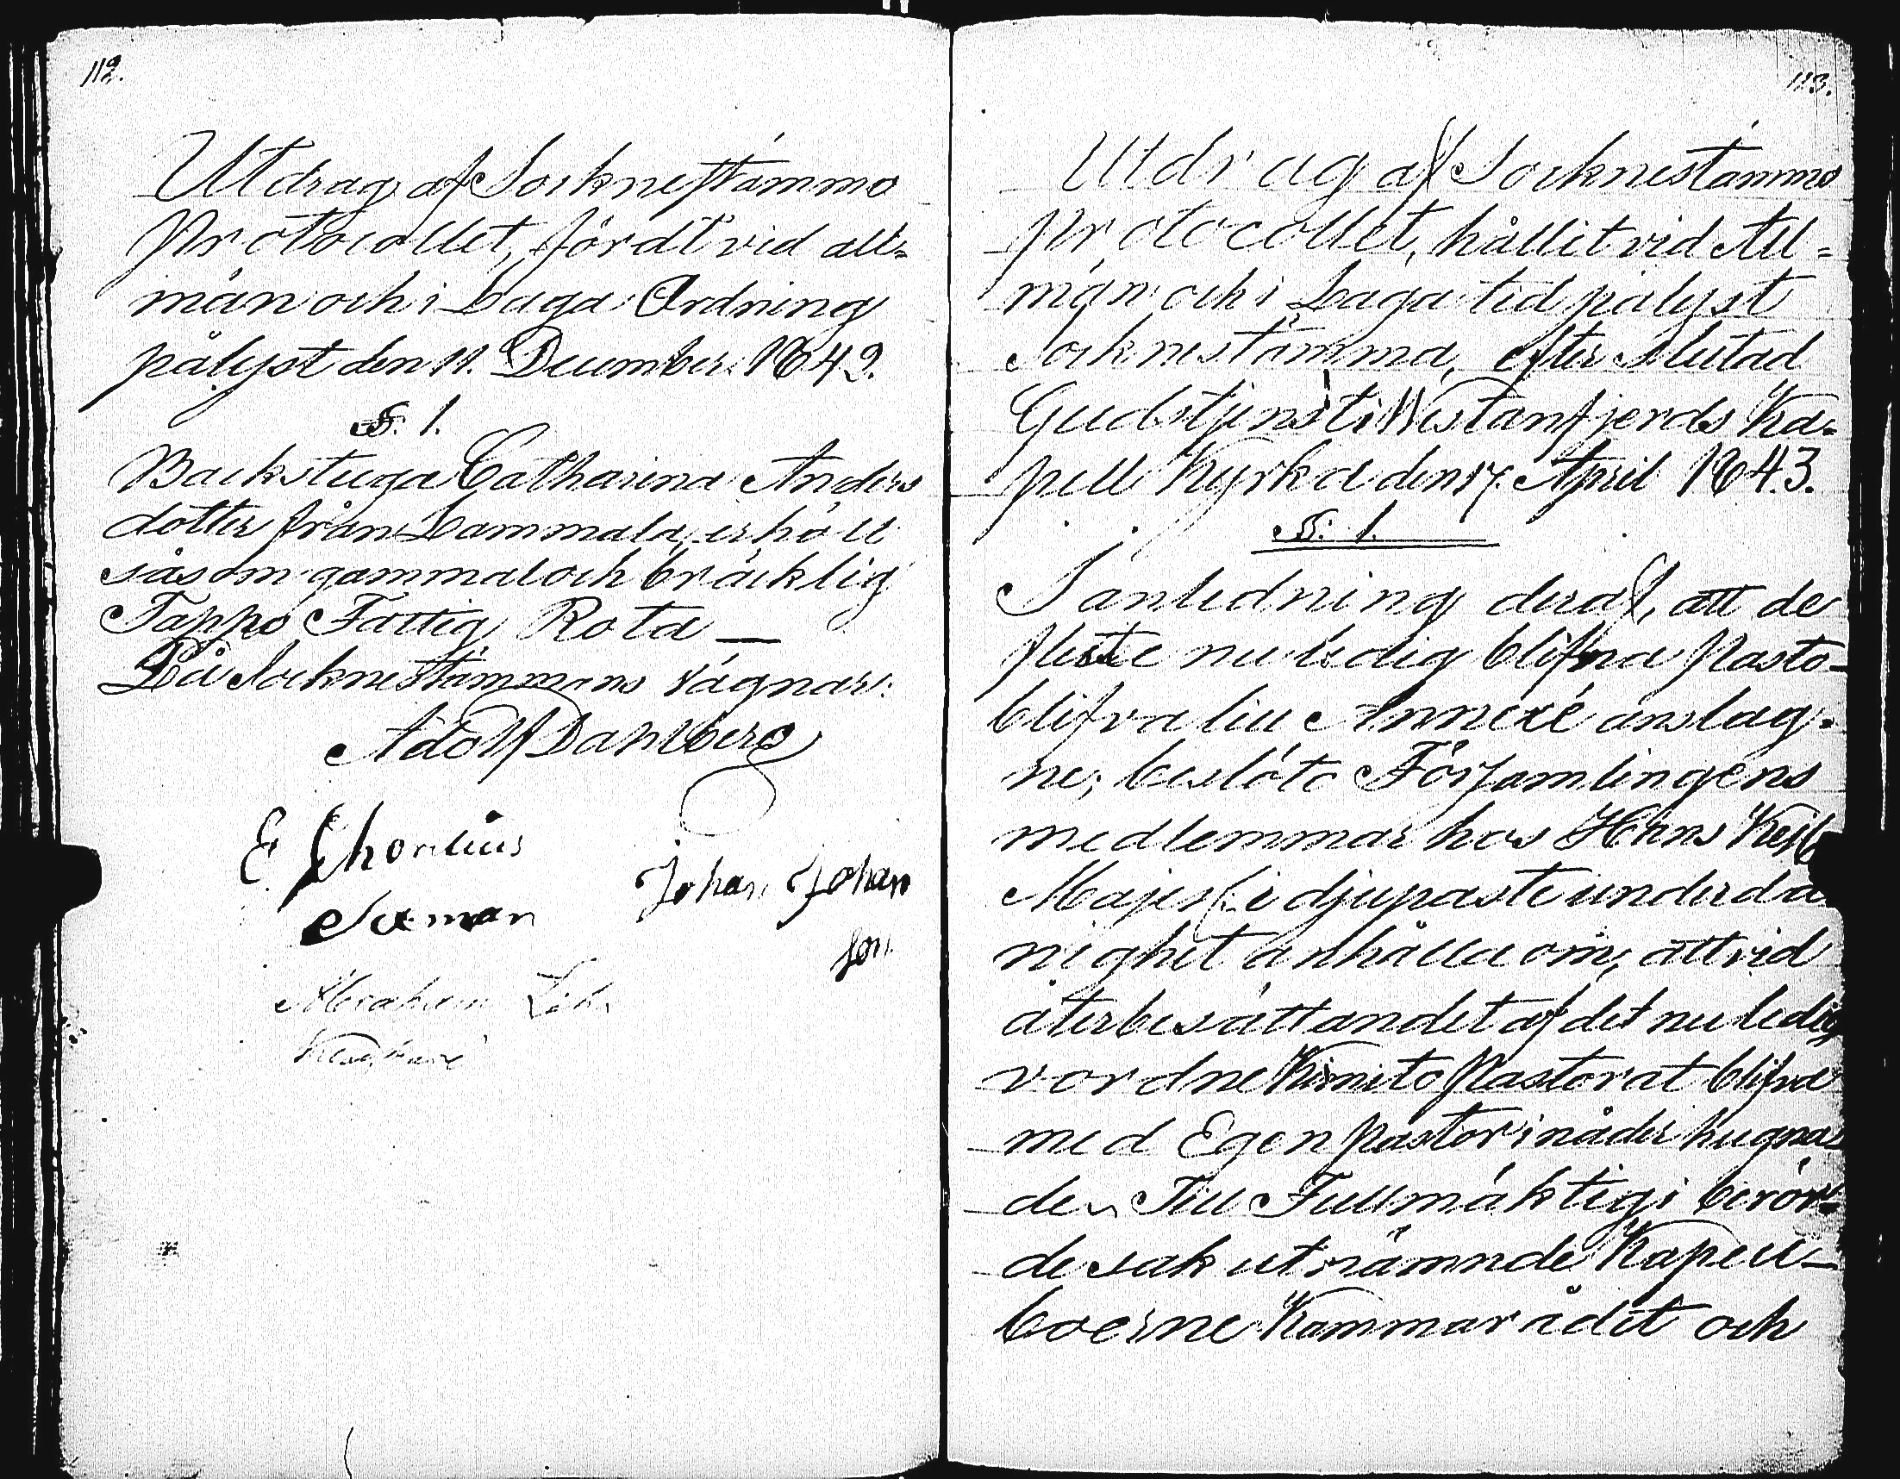 112.
Utdrag af Socknestämmo
Protocollet, fördt vid all=
män och i Laga Ordning
pålyst den 11. December 1842.
§. 1.
Backstuga Catharina Anders
dotter från Lammala, erhöll
såsom gammal och bräcklig
Tappo Fattig Rota —
På Sockne Stämmans vägnar:
Adolf Dahlberg
E Ghorelius
Johan Johan
son
Abraham
113.
Utdrag af Socknestämmo
protocollet, hållit vid All=
män och i Laga tid pålyst
Socknestämma, efter slutad
Gudstjenst i Westanfjerds Ka=
pell Kyrka den 17. April 1843.
§. 1.
I anledning deraf, att de
fleste nu ledig blifna Pasto-
blifva liu Annexé anslag=
ne; beslöto Församlingens
medlemmar hos Hans Kejs
Majest: i djupaste underdå
nighet anhålla om, att vid
återbesättandet af det nu ledig
vordne Kimito Pastorat blifva
med Egen pastor i nåder hugna
de. Till Fullmäktig i berör=
de sak utnämnde Kapell-
boerne Kammarådet och